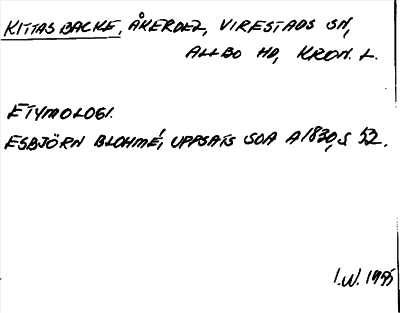 KITTAS BACKE, ÅKERDEL, VIRESTADS SN,
ALLBO HD, KRON. L.
ETYMOLOGI.
ESBJÖRN BLOHMÉ, UPPSATS SOA A1830, S 52.
I.W. 1995